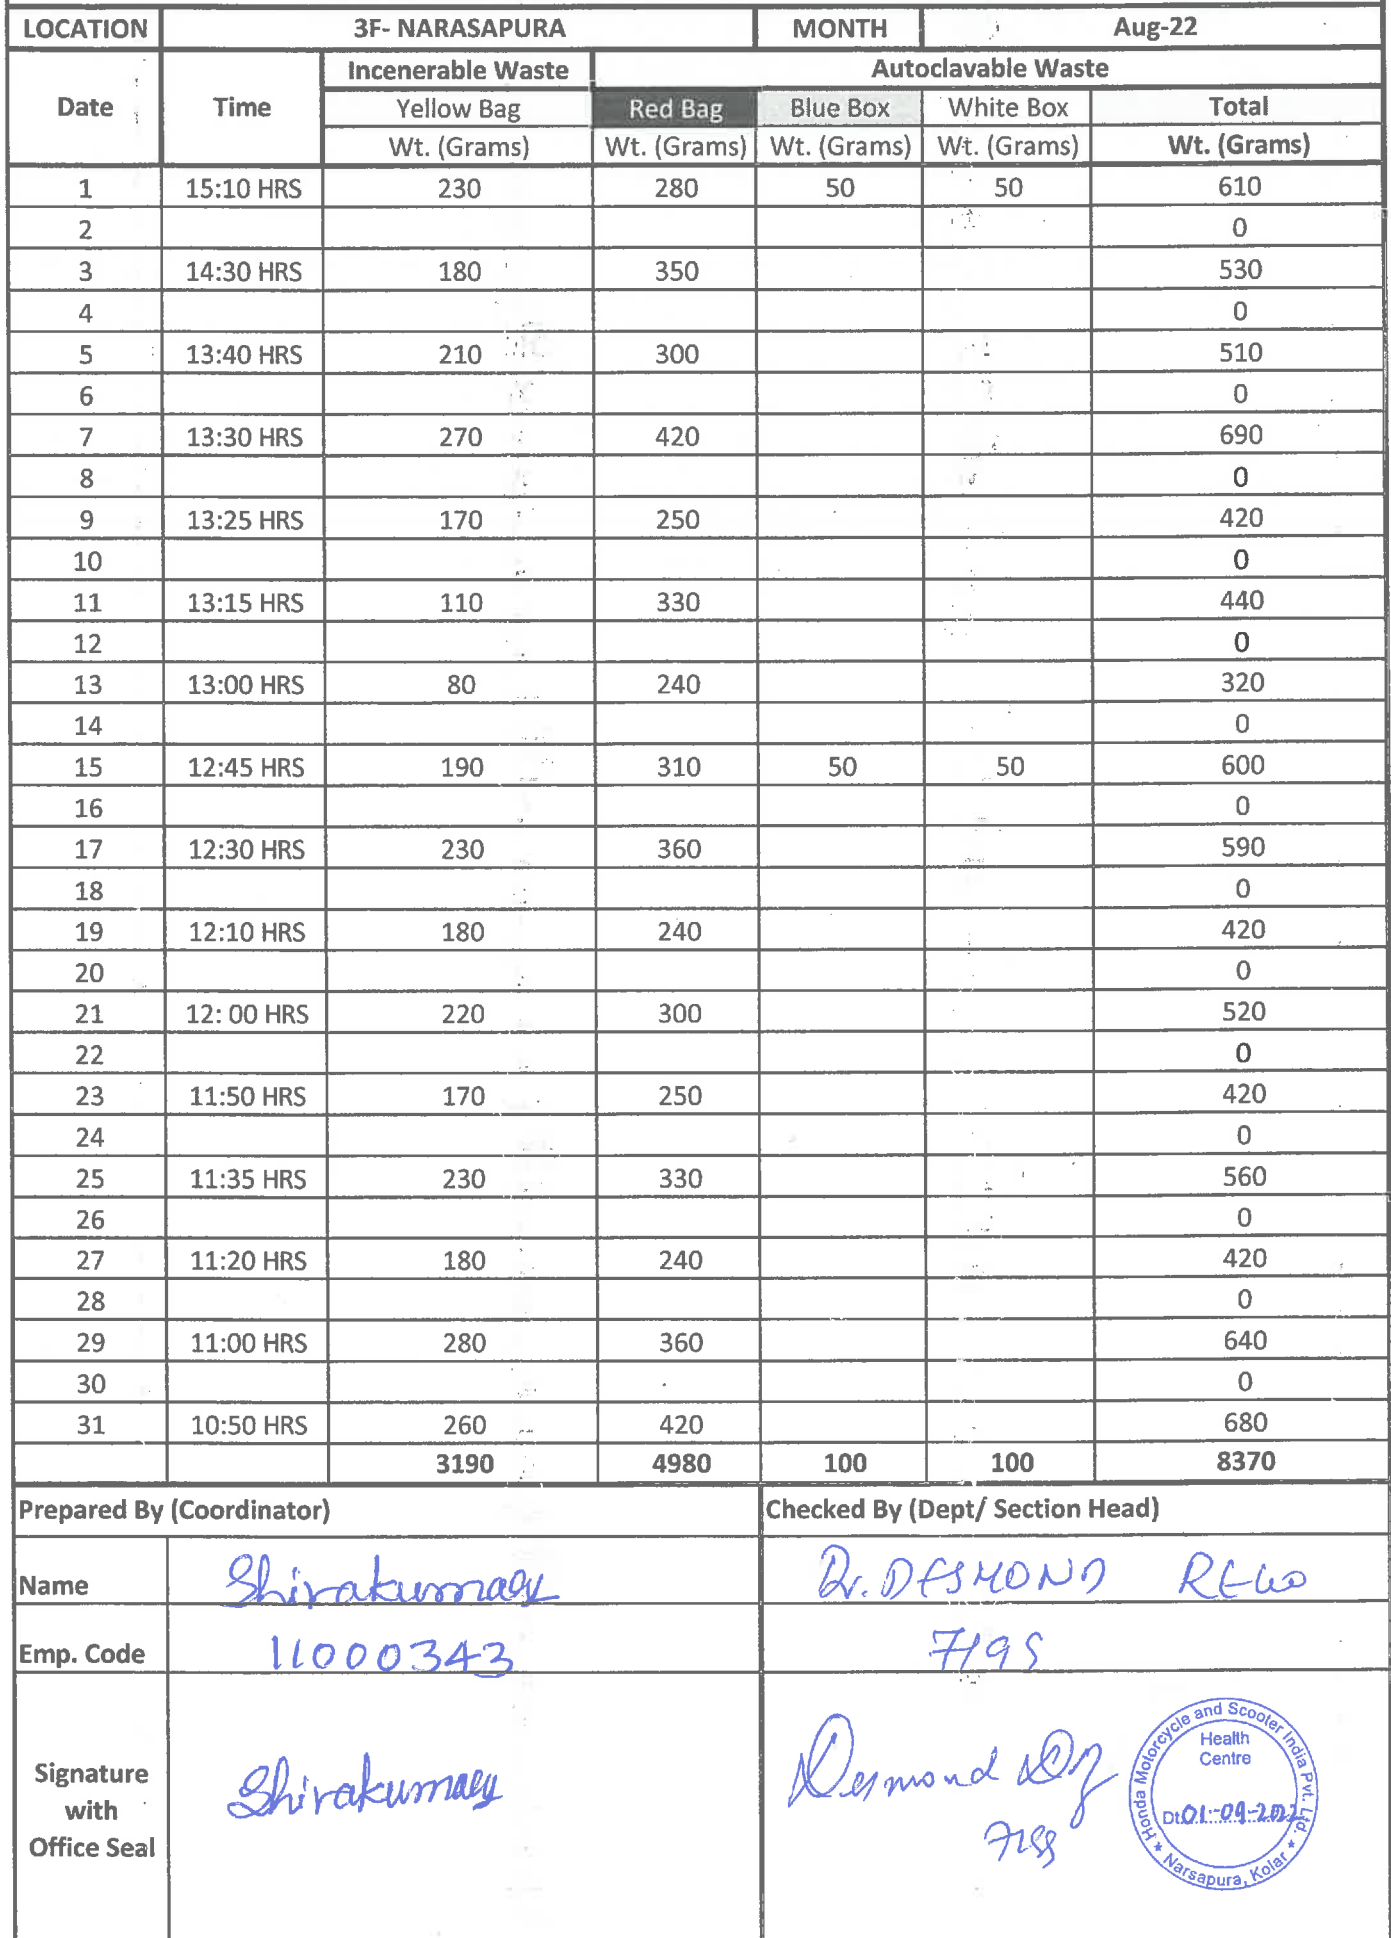 LOCATION 3F- NARASAPURA MONTH Aug-22
Date Time Incenerable Waste Autoclavable Waste
Yellow Bag Red Bag Blue Box White Box Total
Wt. (Grams) Wt. (Grams) Wt. (Grams) Wt. (Grams) Wt. (Grams)
1 15:10 HRS 230 280 50 50 610
2 0
3 14:30 HRS 180 350 530
4 0
5 13:40 HRS 210 300 510
6 0
7 13:30 HRS 270 420 690
8 0
9 13:25 HRS 170 250 420
10 0
11 13:15 HRS 110 330 440
12 0
13 13:00 HRS 80 240 320
14 0
15 12:45 HRS 190 310 50 50 600
16 0
17 12:30 HRS 230 360 590
18 0
19 12:10 HRS 180 240 420
20 0
21 12: 00 HRS 220 300 520
22 0
23 11:50 HRS 170 250 420
24 0
25 11:35 HRS 230 330 560
26 0
27 11:20 HRS 180 240 420
28 0
29 11:00 HRS 280 360 640
30 0
31 10:50 HRS 260 420 680
3190 4980 100 100 8370
Prepared By (Coordinator) Checked By (Dept/ Section Head)
Name Shivakumar Dr. DESMOND REGO
Emp. Code 11000343 7195
Signature
with
Office Seal
Shivakumar
Desmond
Honda Motorcycle and Scooter India Pvt. Ltd.
Health
Centre
Dt.01-09-2022
★ Narsapura, Kolar ★